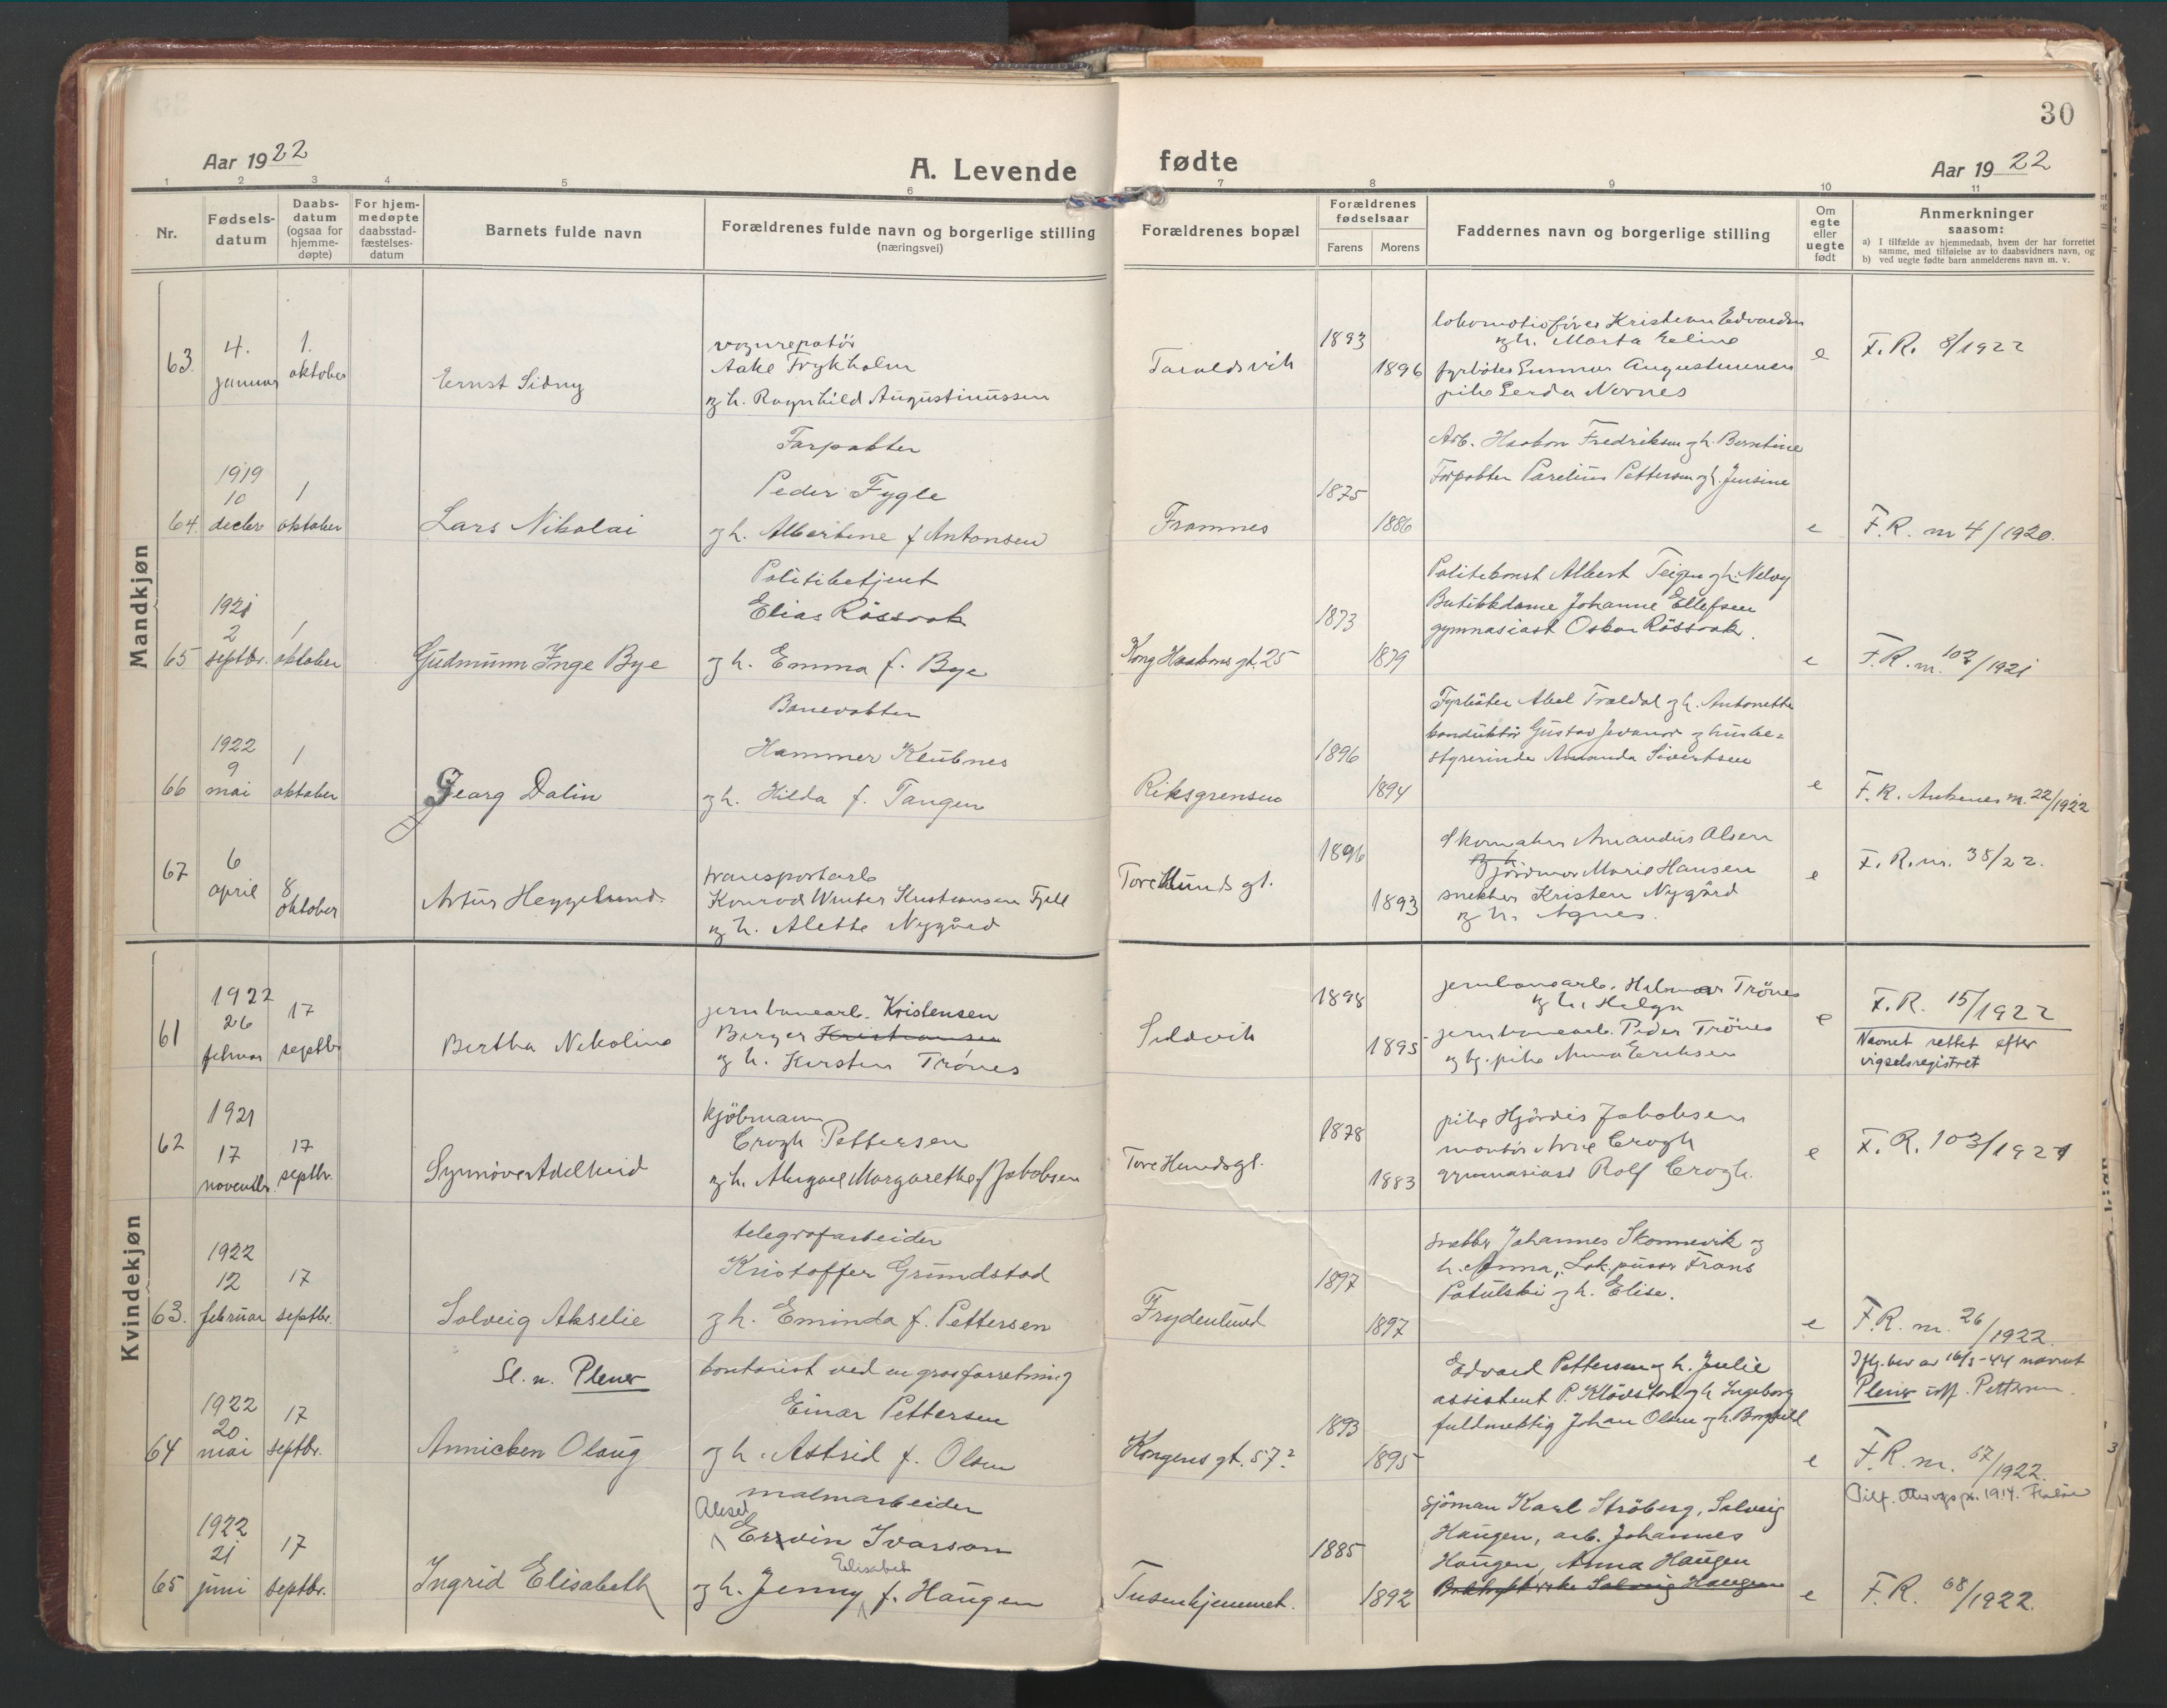 30
Aar 1922
A. Levende fødte
Aar 1922
1 2 3 4 5 6 7 8 9 10 11
Nr.
Fødsels-
datum
Daabs-
datum
(ogsaa for
hjemme-
døpte)
For hjem-
medøpte
daabsstad-
fæstelses-
datum
Barnets fulde navn
Forældrenes fulde navn og borgerlige stilling
(næringsvei)
Forældrenes bopæl
Forældrenes
fødselsaar
Farens Morens
Faddernes navn og borgerlige stilling
Om
egte
eller
uegte
født
Anmerkninger
saasom:
a) I tilfælde av hjemmedaab, hvem der har forrettet
samme, med tilføielse av to daabsvidners navn, og
b) ved uegte fødte barn anmelderens navn m. v.
Mandkjøn
63.
4.
januar
1.
oktober
Ernst Sidny
vognrepatör
Aake Frykholm
og h. Ragnhild Augustinussen
Taraldsvik
1893
1896
lokomotivfører Kristian Edvardsen
og h. Marta Eline
fyrböter Gunnar Augustinussen
pike Gerda Normes
e
F.R. 8/1922
64.
1919
10
decbr
1
oktober
Lars Nikolai
Forpakter
Peder Fygle
og h. Albertine f. Antonsen
Framnes
1875
1886
Arb. Haakon Fredriksen og h. Berntine
Forpakter Parelius Pettersen og h. Jensine
e
F.R. nr 4/1920.
65
1921
2
septbr.
1
oktober
Gudmunn Inge Bye
Politibetjent
Elias Rössvok
og h. Emma f. Bye
Kong Haakons gt. 25
1873
1879
Politikonst Albert Teigen og h. Nelvy
Butikkdame Johanne Ellefsen
gymnasiast Oskar Rössvok.
e
F.R. nr. 102/1921
66
1922
9
mai
1
oktober
Georg Dalin
Banevokter
Hammer Klubnes
og h. Hilda f. Tangen
Riksgrensen
1896
1894
Fyrböter Abel Traldal og h. Antonette
konduktör Gustav Jvanor og husbe-
styrerinde Amanda Sivertsen
e
F.R. Ankenes nr. 22/1922
67
6
april
8
oktober
Artur Heggelund
transportarb
Konrad Winter Kristiansen Fjell
og h. Alette Nygård
Tore Hunds gt.
1896
1893
Skomaker Amandus Olsen
Jordmor Marie Hansen
snekker Kristen Nygård
og h. Agnes.
e
F.R. nr. 38/22.
Kvindekjøn
61
1922
26
februar
17
septbr
Bertha Nikoline
jernbanearb. Kristensen
Birger Kristiansen
og h. Kirsten Trönes
Sildvik
1898
1895
jernbanearb. Hilmar Trönes
og h. Helga
jernbanearb. Peder Trönes
og bg. pike Anna Eriksen
e
F.R. 15/1922
Navnet rettet efter
vigselsregistret
62
1921
17
novembr.
17
septbr.
Synnöve Adelheid
kjöbmann
Crogh Pettersen
og h. Abigael Margarethe f Jakobsen
Tore Hundsgt.
1878
1883
pike Hjördis Jakobsen
montör Arne Crogh
gymnasiast Rolf Crogh.
e
F.R. 103/1921
63.
1922
12
februar
17
septbr.
Solveig Akselie
telegrafarbeider
Kristoffer Grundstad
og h. Eminda f. Pettersen
Frydenlund
1897
1897
snekker Johannes Skonnevik og
h. Anna, Lok.pusser Frans
Patulski og h. Elise.
e
F.R. nr. 26/1922.
64
1922
20
mai
17
septbr.
Sl. n. Plener
Annichen Olaug
kontorist ved en grosforretning
Einar Pettersen
og h. Astrid f. Olsen
Kongens gt. 57?
1893
1895
Edvard Pettersen og h. Julie
assistent P. Klövstad og h. Ingeborg
fuldmektig Johan Olsen og h. Borghild
e
Iflg. bev av 16/3-44 navnet
Plener istf. Pettersen.
F.R. nr. 67/1922.
65
1922
21
juni
17
septbr.
Ingrid Elisabeth
malmarbeider
Aksel
Ervin Ivarson
Elisabet
og h. Jenny f. Haugen
Tusenhjemmet.
1885
1892
sjöman Karl Ströberg, Solveig
Haugen, arb. Johannes
Haugen, Anna Haugen
Solveig Haugen
e
1914.
F.R. 68/1922.